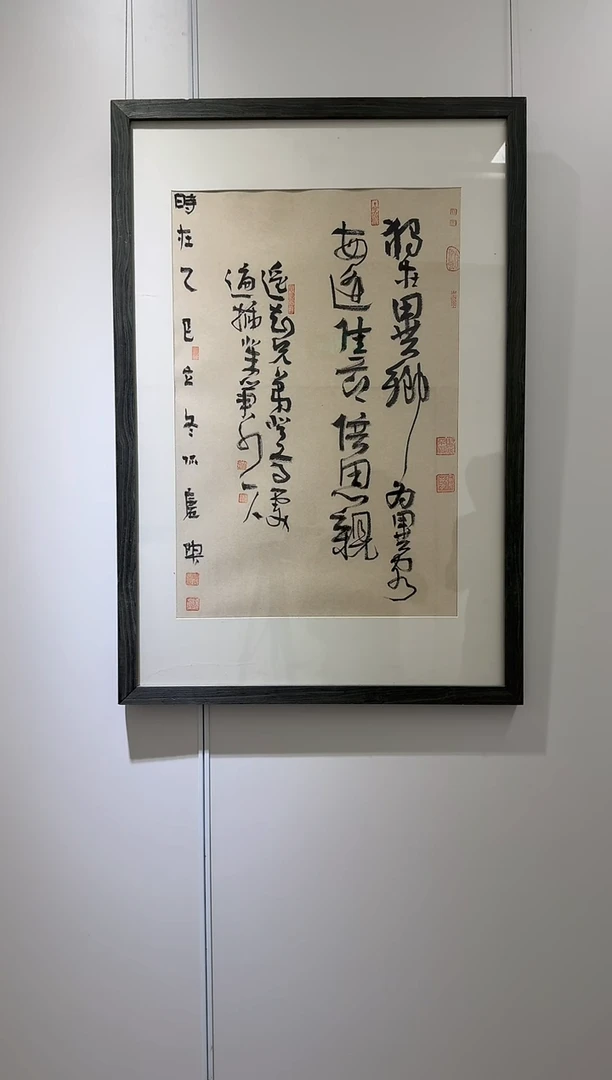 獨在異鄉為異客
每逢佳節倍思親
遥知兄弟登高處
遍插茱萸少一人
時在乙巳立冬